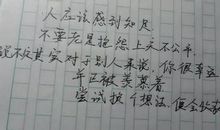 人应该感到知足
不要老是抱怨上天不公平
说不定其实对于别人来说,你很幸运
并正被羡慕着
尝试换个想法,便会欣